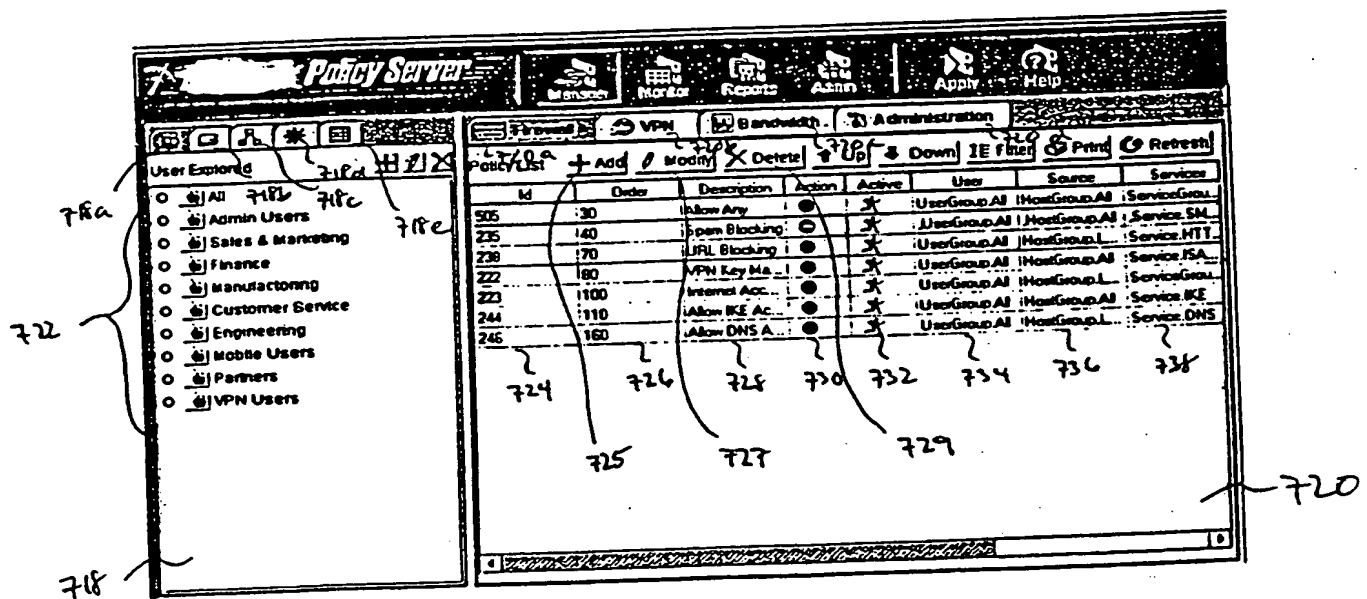 Policy Server
Manager Monitor Reports Admin Apply Help
Firewall VPN Bandwidth Administration
718a 718b 718c 718d 718e
720a 720b 720c 720d
User Explorer
Policy List Add Modify Delete Up Down Filter Print Refresh
All
Admin Users
Sales & Marketing
Finance
Manufactoring
Customer Service
Engineering
Mobile Users
Partners
VPN Users
Id Order Description Action Active User Source Services
505 30 Allow Any UserGroup.All HostGroup.All ServiceGrou...
235 40 Spam Blocking UserGroup.All HostGroup.All Service.SM...
238 70 URL Blocking UserGroup.All HostGroup.L... Service.HTT...
222 80 VPN Key Ma... UserGroup.All HostGroup.All Service.ISA...
223 100 Internet Acc... UserGroup.All HostGroup.L... ServiceGrou...
244 110 Allow IKE Ac... UserGroup.All HostGroup.All Service.IKE
246 160 Allow DNS A... UserGroup.All HostGroup.L... Service.DNS
722
724 726 728 730 732 734 736 738
725 727 729
720
718